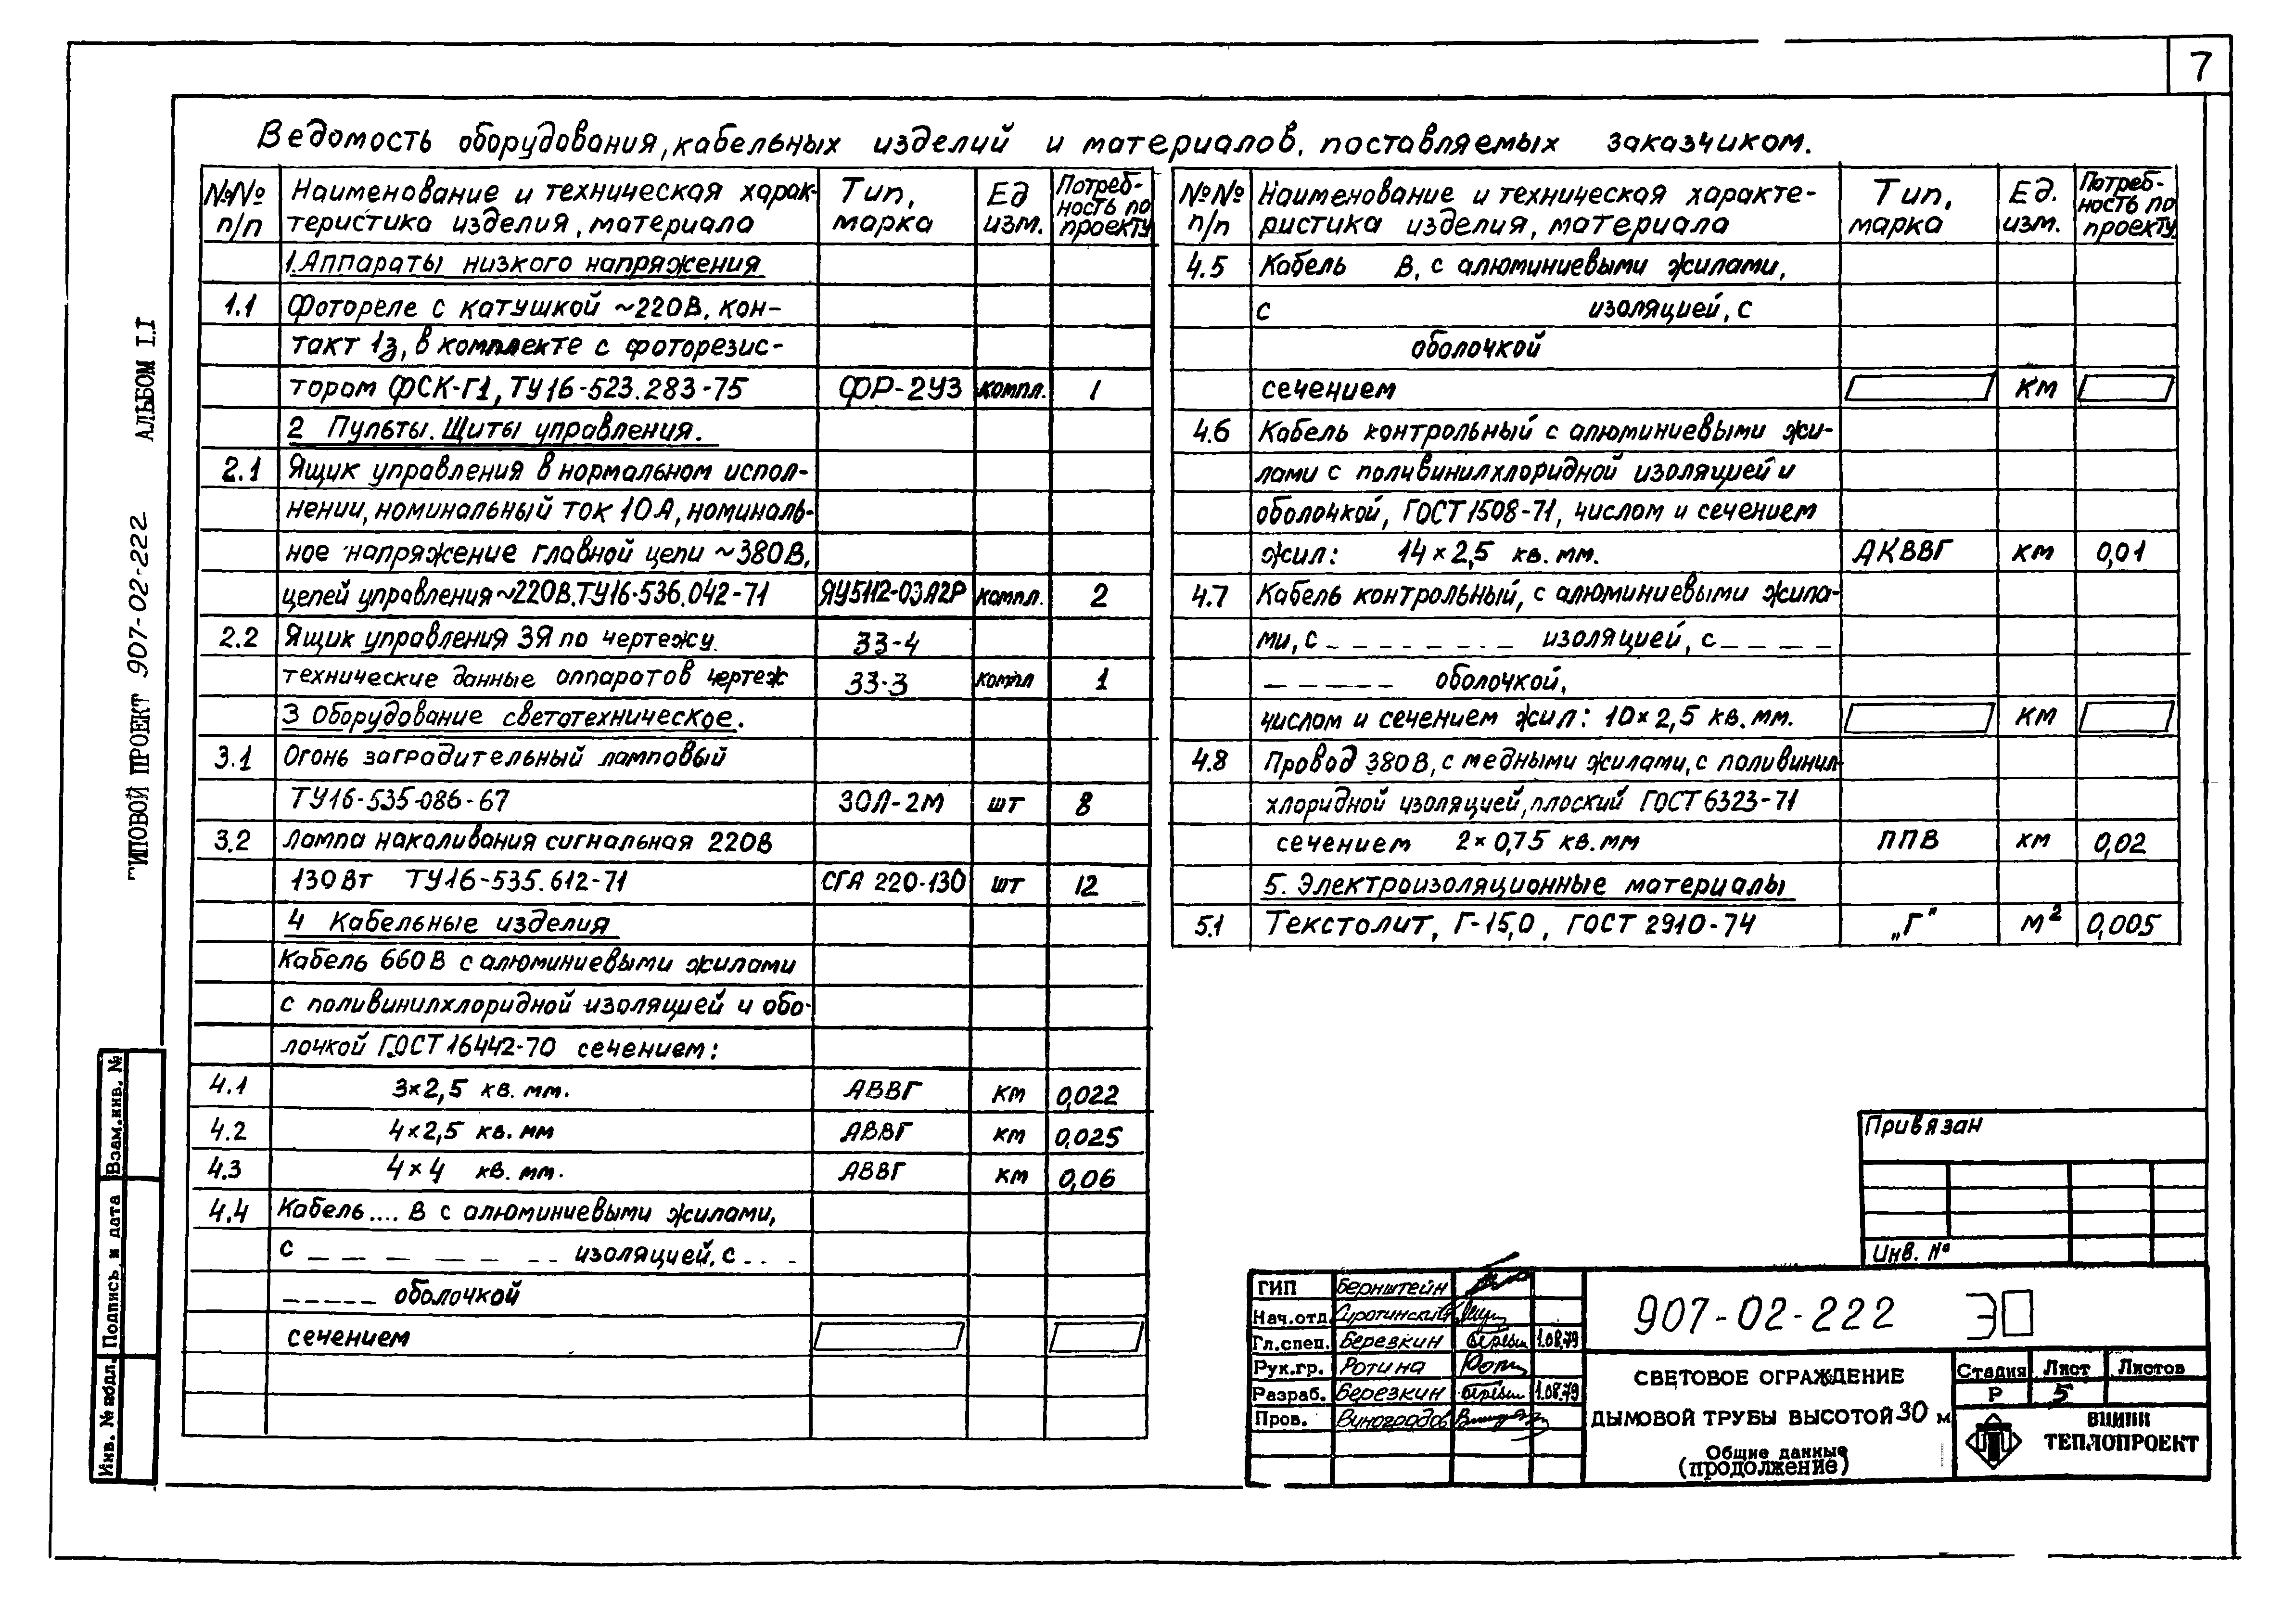 7
Ведомость оборудования, кабельных изделий и материалов, поставляемых заказчиком.
№№ п/п
Наименование и техническая харак-
теристика изделия, материала
Тип, марка
Ед изм.
Потреб-
ность по
проекту
1. Аппараты низкого напряжения
1.1 Фотореле с катушкой ~220В, кон-
такт 1з, в комплекте с фоторезис-
тором ФСК-Г1, ТУ16-523.283-75 ФР-2У3 компл. 1
2 Пульты. Щиты управления.
2.1 Ящик управления в нормальном испол-
нении, номинальный ток 10А, номиналь-
ное напряжение главной цепи ~380В,
цепей управления ~220В. ТУ16-536.042-71 ЯУ5112-03А2Р компл. 2
2.2 Ящик управления ЗЯ по чертежу. 33-4
технические данные аппаратов чертеж 33-3 компл 1
3 Оборудование светотехническое.
3.1 Огонь заградительный ламповый
ТУ16-535-086-67 ЗОЛ-2М шт 8
3.2 Лампа накаливания сигнальная 220В
130Вт ТУ16-535.612-71 СГА 220-130 шт 12
4 Кабельные изделия
Кабель 660В с алюминиевыми жилами
с поливинилхлоридной изоляцией и обо-
лочкой ГОСТ 16442-70 сечением:
4.1 3×2,5 кв. мм. АВВГ км 0,022
4.2 4×2,5 кв. мм АВВГ км 0,025
4.3 4×4 кв. мм. АВВГ км 0,06
4.4 Кабель .... В с алюминиевыми жилами,
с _ _ _ _ _ _ изоляцией, с _ _ _
_ _ _ _ _ оболочкой
сечением
№№ п/п
Наименование и техническая характе-
ристика изделия, материала
Тип, марка
Ед. изм.
Потреб-
ность по
проекту.
4.5 Кабель В, с алюминиевыми жилами,
с изоляцией, с
оболочкой
сечением км
4.6 Кабель контрольный с алюминиевыми жи-
лами с поливинилхлоридной изоляцией и
оболочкой, ГОСТ 1508-71, числом и сечением
жил: 14×2,5 кв. мм. АКВВГ км 0,01
4.7 Кабель контрольный, с алюминиевыми жила-
ми, с _ _ _ _ _ _ изоляцией, с _ _ _ _
_ _ _ _ _ оболочкой,
числом и сечением жил: 10×2,5 кв. мм. км
4.8 Провод 380В, с медными жилами, с поливинил-
хлоридной изоляцией, плоский ГОСТ 6323-71
сечением 2×0,75 кв. мм ППВ км 0,02
5. Электроизоляционные материалы
5.1 Текстолит, Г-15,0, ГОСТ 2910-74 „Г" м² 0,005
ТИПОВОЙ ПРОЕКТ 907-02-222 АЛЬБОМ I.I
Взам.инв. №
Подпись и дата
Инв. № подл.
Привязан
Инв. №
ГИП Бернштейн
Нач.отд. Сиротинский
Гл.спец. Березкин 1.08.79
Рук.гр. Ротина
Разраб. Березкин 1.08.79
Пров. Виноградов
907-02-222 Э
СВЕТОВОЕ ОГРАЖДЕНИЕ
ДЫМОВОЙ ТРУБЫ ВЫСОТОЙ 30 м
Общие данные
(продолжение)
Стадия Лист Листов
Р 5
ВНИПИ
ТЕПЛОПРОЕКТ